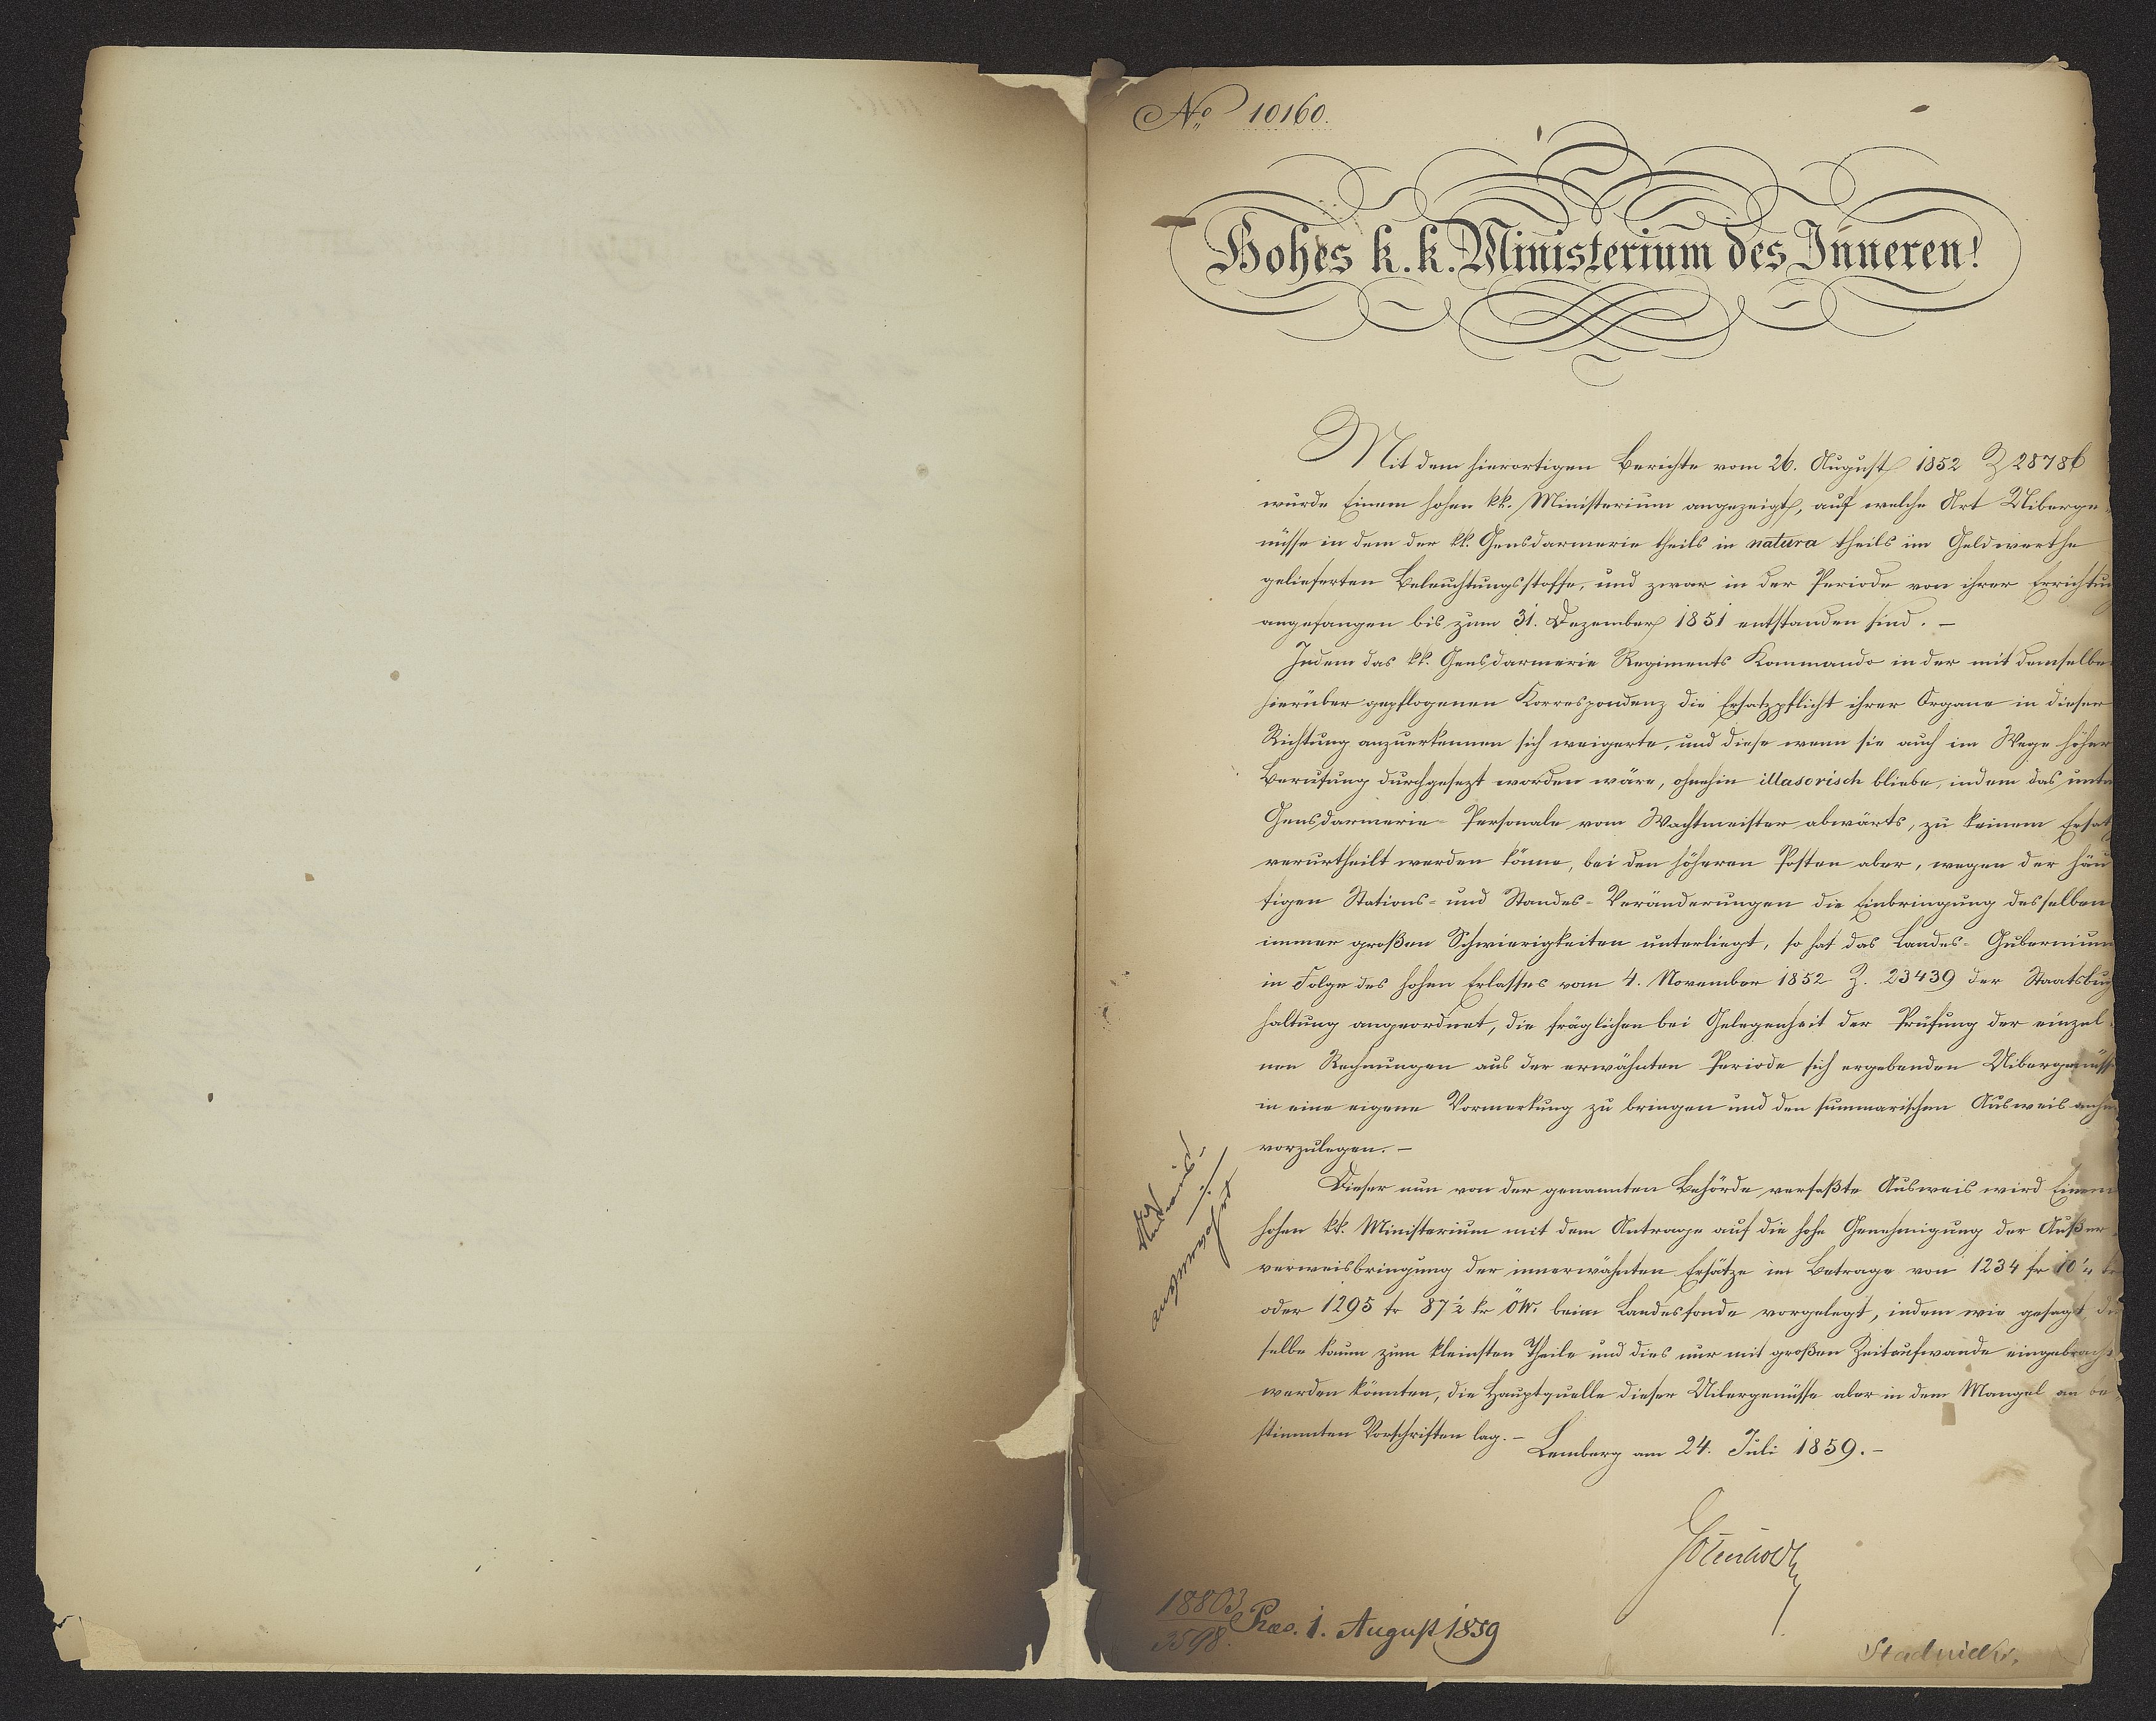 No 10160.
Hohes k. k. Ministerium des Inneren!
Mit dem hierortigen Berichte vom 26. August 1852 Z 28786
wurde Einem hohen kk. Ministerium angezeigt, auf welche Art Uiberge-
nüsse in dem der kk. Gensdarmerie theils in natura theils im Geldwerthe
gelieferten Beleuchtungsstoffe, und zwar in der Periode von ihrer Errichtun
angefangen bis zum 31. Dezember 1851 entstanden sind. –
Indem das kk. Gensdarmerie Regiments Kommando in der mit demselbe
hierüber gepflogenen Korrespondenz die Ersatzpflicht ihrer Organe in dieser
Richtung anzuerkennen sich weigerte, und diese wenn sie auch im Wege höher
Berufung durchgesezt worden wäre, ohnehin illasorisch bliebe, indem das unte
Gensdarmerie- Personale vom Wachtmeister abwärts, zu keinem Ersatz
verurtheilt werden könne, bei den höheren Posten aber, wegen der häu
figen Stations- und Standes-Veränderungen die Einbringung desselben
immer großen Schwierigkeiten unterliegt, so hat das Landes- Gubernium
in Folge des hohen Erlasses vom 4. November 1852 Z. 23439 der Staatsbuch
haltung angeordnet, die fräglichen bei Gelegenheit der Prüfung der einzel-
nen Rechnungen aus der erwähnten Periode sich ergebenden Uibergenüss
in eine eigene Vormerkung zu bringen und den summarischen Ausweis anher
vorzulegen. –
Dieser nun von der genannten Behörde verfaßte Ausweis wird Einem
hohen kk. Ministerium mit dem Antrage auf die hohe Genehmigung der Außer-
verweisbringung der innerwähnten Ersätze im Betrage von 1234 fr 10 1/4 kr
oder 1295 fr 87 1/2 kr ÖW. beim Landesfonde vorgelegt, indem wie gesagt, die
selbe kaum zum kleinsten Theile und dies nur mit großen Zeitaufwande eingebracht
werden könnten, die Hauptquelle dieser Uibergenüsse aber in dem Mangel an be-
stimmten Vorschriften lag. –
Lemberg am 24. Juli 1859. –
18803
3598.
Præs. 1. August 1859
Stadnicki,